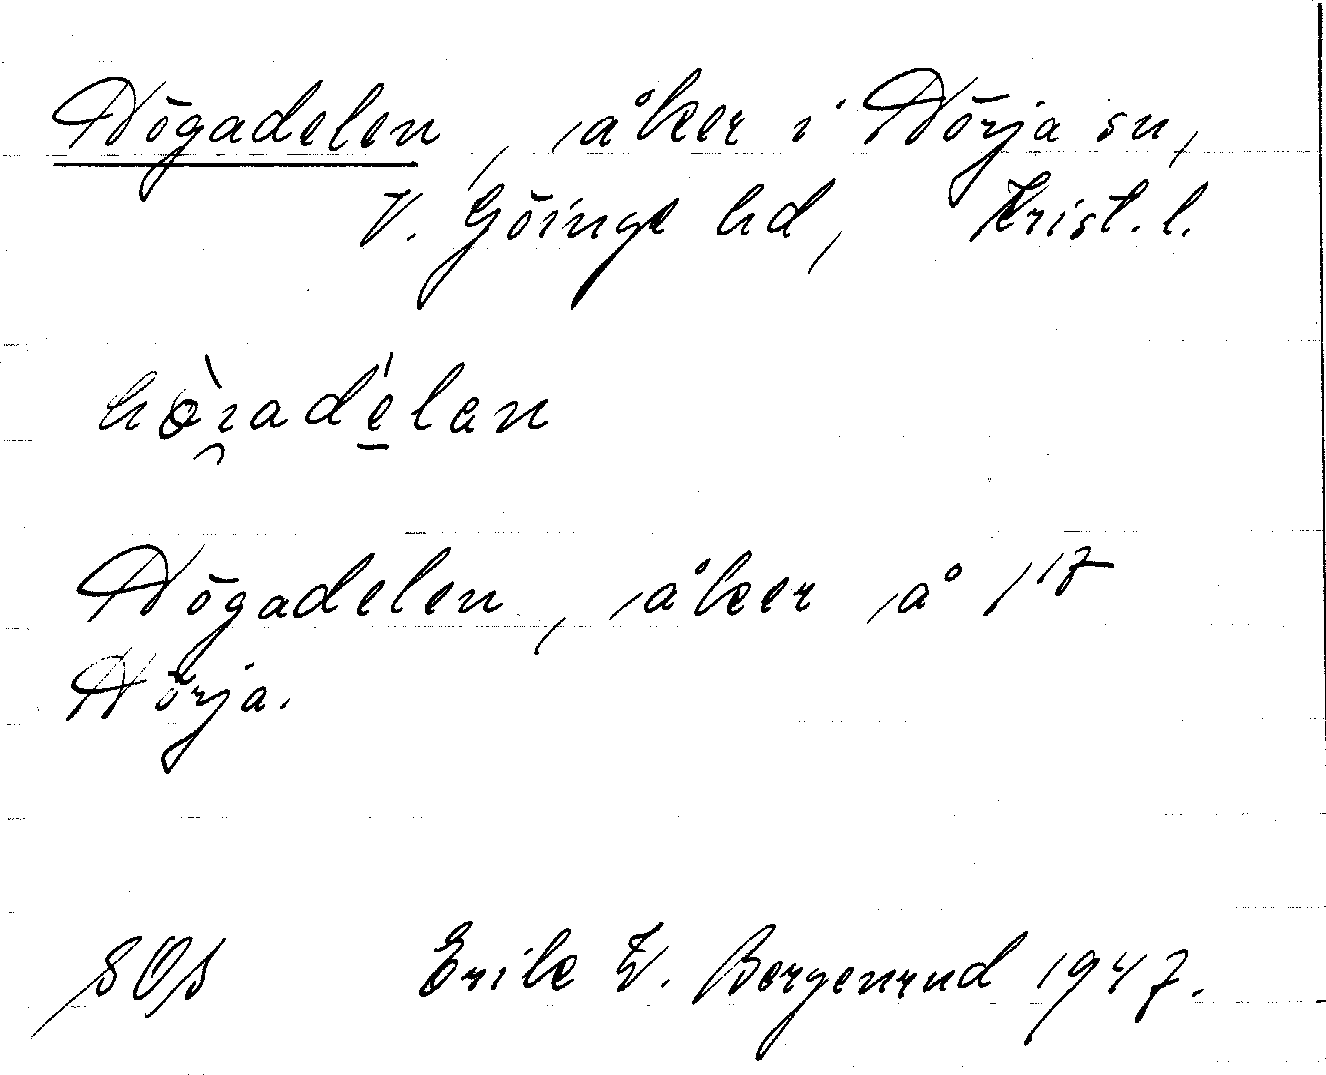 Högadelen, åker i Hörja sn,
V. Göinge hd, Krist. l.
hø̀i̯adé̱lan
Högadelen, åker å 1¹⁷
Hörja.
SOS Erik W. Bergenrud 1947.